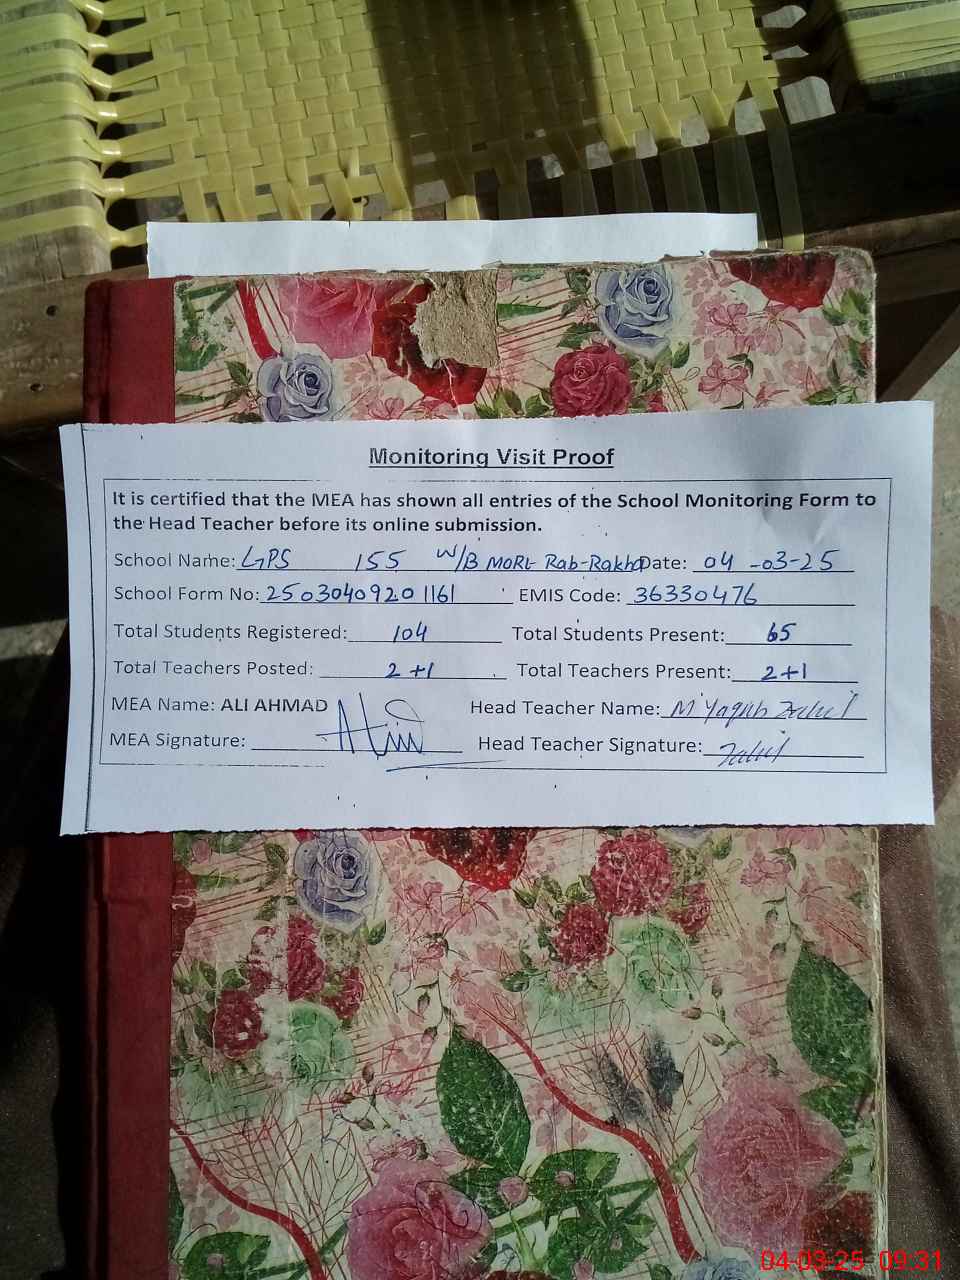 Monitoring Visit Proof
It is certified that the MEA has shown all entries of the School Monitoring Form to
the Head Teacher before its online submission.
School Name: GPS 155 W/B MORE Rab-Rakha Date: 04-03-25
School Form No: 25030409201161 EMIS Code: 36330476
Total Students Registered: 104 Total Students Present: 65
Total Teachers Posted: 2+1 Total Teachers Present: 2+1
MEA Name: ALI AHMAD Head Teacher Name: M Yaqub Zahid
MEA Signature: Head Teacher Signature: Zahid
04-03-25 09:31